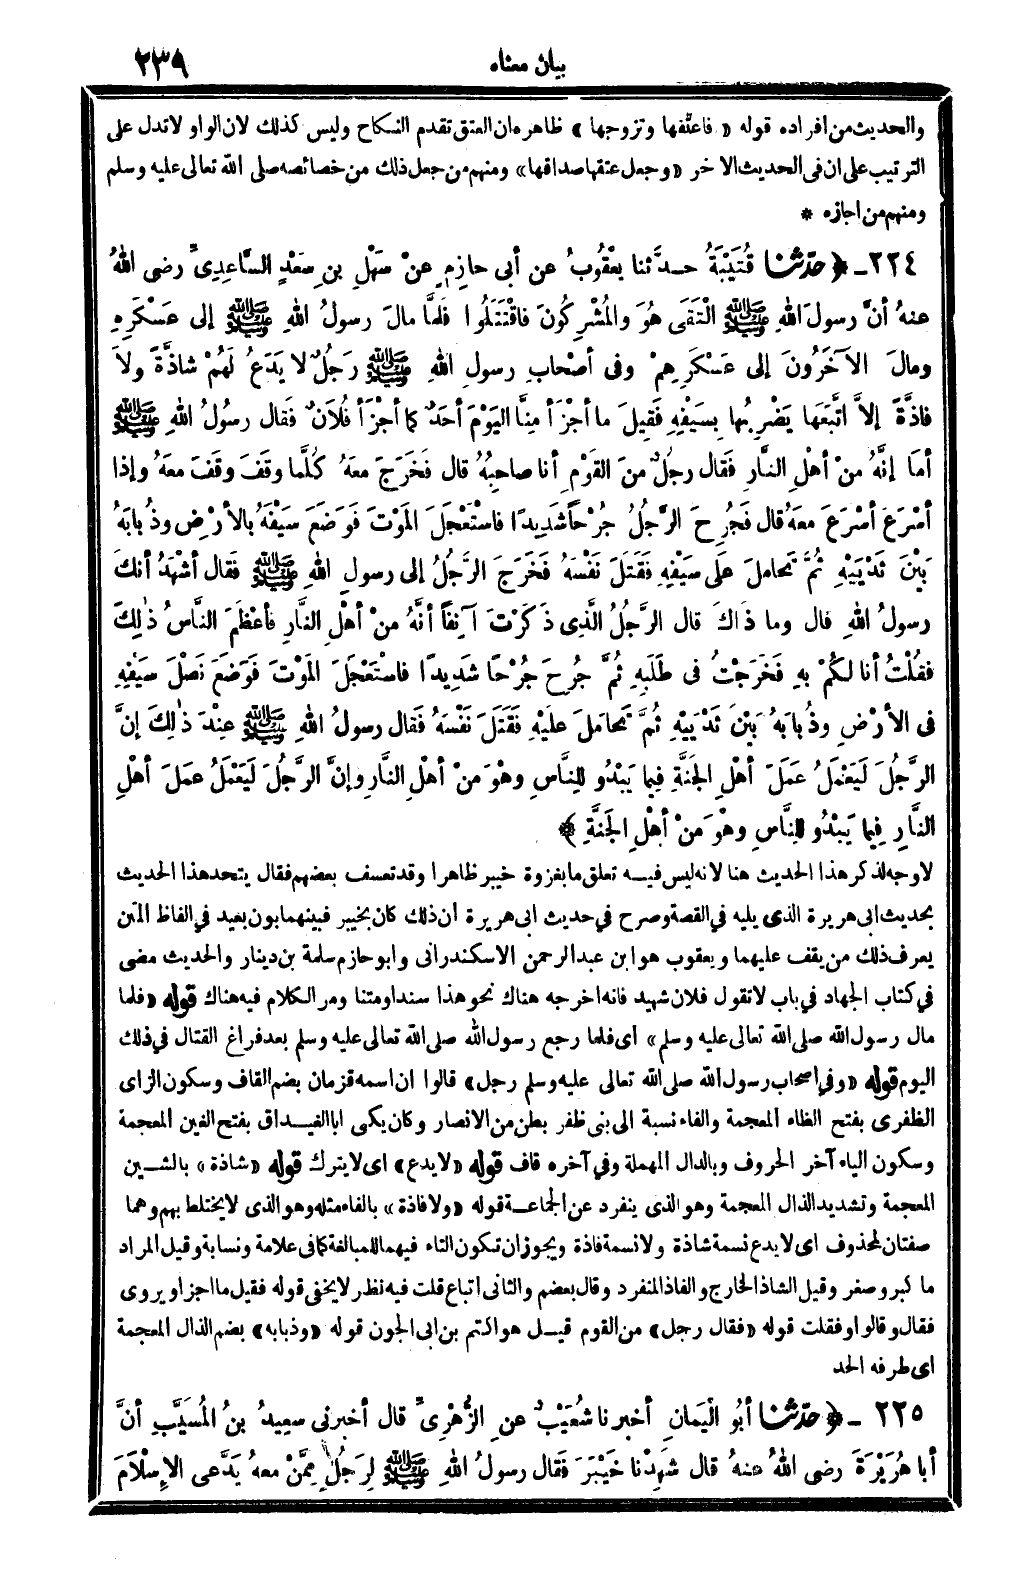 بيان معناه ٢٣٩
والحديث من افراده قوله «فاعتقها وتزوجها» ظاهره ان العتق تقدم النكاح وليس كذلك لان الواو لا تدل على
الترتيب على ان فى الحديث الاخر «وجعل عتقها صداقها» ومنهم من جعل ذلك من خصائصه صلى الله تعالى عليه وسلم
ومنهم من اجازه *
٢٢٤ - ﴿حدّثنا قُتَيْبَةُ حدَّثنا يَعْقُوبُ عن أبى حازِمٍ عنْ سَهْلِ بنِ سَعْدٍ السَّاعِدِىِّ رضى اللهُ
عنهُ أنَّ رسولَ اللهِ ﷺ الْتَقَى هُوَ والمُشْرِكُونَ فاقْتَتَلُوا فَلَمَّا مالَ رسولُ اللهِ ﷺ إلى عَسْكَرِهِ
ومالَ الآخَرُونَ إلى عَسْكَرِهِمْ وفى أصْحابِ رسولِ اللهِ ﷺ رَجُلٌ لا يَدَعُ لَهُمْ شاذَّةً ولاَ
فاذَّةً إلاَّ اتَّبَعَها يَضْرِبُها بِسَيْفِهِ فَقِيلَ ما أجْزَأ مِنَّا اليَوْمَ أحَدٌ كما أجْزَأ فُلاَنٌ فَقال رسُولُ اللهِ ﷺ
أما إنَّهُ منْ أهْلِ النَّارِ فَقال رجُلٌ منَ القَوْمِ أنا صاحِبُهُ قال فَخَرَجَ معَهُ كُلَّما وقَفَ وقَفَ معَهُ وإذا
أسْرَعَ أسْرَعَ معَهُ قال فَجُرِحَ الرَّجُلُ جُرْحاً شَدِيدًا فاسْتَعْجَلَ المَوْتَ فَوَضَعَ سَيْفَهُ بالأرْضِ وذُبابَهُ
بَيْنَ ثَدْيَيْهِ ثُمَّ تَحامَلَ عَلَى سَيْفِهِ فَقَتَلَ نَفْسَهُ فَخَرَجَ الرَّجُلُ إلى رسولِ اللهِ ﷺ فَقال أشْهَدُ أنكَ
رسولُ اللهِ قال وما ذاكَ قال الرَّجُلُ الَّذِى ذَكَرْتَ آنِفاً أنَّهُ منْ أهْلِ النَّارِ فأعْظَمَ النَّاسُ ذٰلِكَ
فقُلْتُ أنا لكُمْ بهِ فَخَرَجْتُ فى طَلَبِهِ ثُمَّ جُرِحَ جُرْحًا شَدِيدًا فاسْتَعْجَلَ المَوْتَ فَوَضَعَ نَصْلَ سَيْفِهِ
فى الأرْضِ وذُبابَهُ بَيْنَ ثَدْيَيْهِ ثُمَّ تَحامَلَ عليْهِ فَقَتَلَ نَفْسَهُ فَقال رسولُ اللهِ ﷺ عِنْدَ ذٰلِكَ إنَّ
الرَّجُلَ لَيَعْمَلُ عَمَلَ أهْلِ الجَنَّةِ فِيما يَبْدُو لِلنَّاسِ وهْوَ منْ أهْلِ النَّارِ وإنَّ الرَّجُلَ لَيَعْمَلُ عمَلَ أهْلِ
النَّارِ فِيما يَبْدُو لِلنَّاسِ وهْوَ منْ أهْلِ الجَنَّةِ﴾
لا وجه لذكر هذا الحديث هنا لانه ليس فيه تعلق ما بغزوة خيبر ظاهرا وقد تعسف بعضهم فقال يتحد هذا الحديث
بحديث ابى هريرة الذى يليه في القصة وصرح في حديث ابى هريرة أن ذلك كان بخيبر فبينهما بون بعيد في الفاظ المتن
يعرف ذلك من يقف عليهما ويعقوب هو ابن عبد الرحمن الاسكندرانى وابو حازم سلمة بن دينار والحديث مضى
في كتاب الجهاد في باب لا تقول فلان شهيد فانه اخرجه هناك نحو هذا سندا ومتنا ومر الكلام فيه هناك قوله «فلما
مال رسول الله صلى الله تعالى عليه وسلم» اى فلما رجع رسول الله صلى الله تعالى عليه وسلم بعد فراغ القتال في ذلك
اليوم قوله «وفي اصحاب رسول الله صلى الله تعالى عليه وسلم رجل» قالوا ان اسمه قزمان بضم القاف وسكون الزاى
الظفرى بفتح الظاء المعجمة والفاء نسبة الى بنى ظفر بطن من الانصار وكان يكى ابا الغيداق بفتح الغين المعجمة
وسكون الياء آخر الحروف وبالدال المهملة وفي آخره قاف قوله «لا يدع» اى لا يترك قوله «شاذة» بالشين
المعجمة وتشديد الذال المعجمة وهو الذى ينفرد عن الجماعة قوله «ولا فاذة» بالفاء مثله وهو الذى لا يختلط بهم وهما
صفتان لمحذوف اى لا يدع نسمة شاذة ولا نسمة فاذة ويجوز ان تكون التاء فيهما للمبالغة كما فى علامة ونسابة وقيل المراد
ما كبر وصغر وقيل الشاذ الخارج والفاذ المنفرد وقال بعضهم والثانى اتباع قلت فيه نظر لا يخفى قوله فقيل ما اجزا ويروى
فقال وقالوا وفقلت قوله «فقال رجل» من القوم قيل هو اكتم بن ابى الجون قوله «وذبابه» بضم الذال المعجمة
اى طرفه الحد
٢٢٥ - ﴿حدّثنا أبُو اليَمانِ أخبرنا شُعَيْبٌ عنِ الزُّهْرِىِّ قال أخبرنى سعِيدُ بنُ المُسَيَّبِ أنَّ
أبا هُرَيْرَةَ رضى اللهُ عنهُ قال شَهِدْنا خَيْبَرَ فَقال رسولُ اللهِ ﷺ لِرَجُلٍ مِمَّنْ معهُ يَدَّعى الإسْلاَمَ